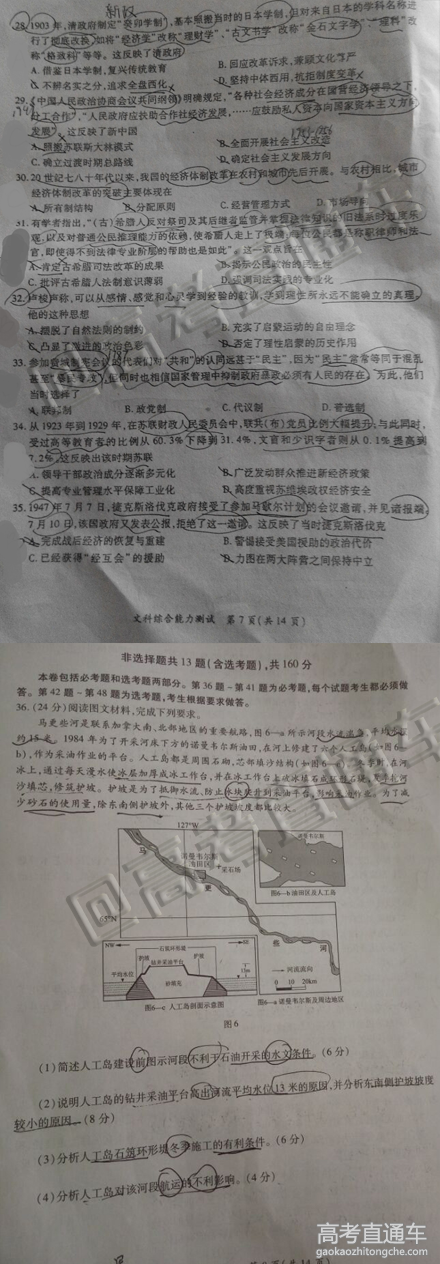 新政
28. 1903年,清政府制定"癸卯学制",基本照搬当时的日本学制,但对来自日本的学科名称进
行了彻底改换,如将"经济学"改称"理财学"、"古文书学"改称"金石文字学"、"理科"改
称"格致科"等等。这反映了清政府
A. 借鉴日本学制,复兴传统教育
B. 回应改革诉求,兼顾文化尊严
C. 不解名实之分,追求全盘西化
D. 坚持中体西用,抗拒制度变革
29.《中国人民政治协商会议共同纲领》明确规定,"各种社会经济成分在国营经济领导之下,
分工合作","人民政府应扶助合作社经济发展,……应鼓励私人资本向国家资本主义方向
发展"。这反映了新中国
A. 照搬苏联斯大林模式
B. 全面开展社会主义改造
C. 确立过渡时期总路线
D. 确定社会主义发展方向
30. 20世纪七八十年代以来,我国的经济体制改革在农村和城市先后开展。与农村相比,城市
经济体制改革的突破主要体现在
A. 所有制结构
B. 分配原则
C. 经营管理方式
D. 市场导向
31. 有学者指出,"(古)希腊人民对祭司及其后继者监督并掌握法律知识的旧法系时
观,以及对普通公民推理能力的依赖,使希腊人走上了
官,即使得不到法律专业阶层的帮助也是如此"。这一观点旨在
A. 肯定古希腊司法改革的成果
B. 揭示公民政治的民主性
C. 批评古希腊人法制意识薄弱
D. 强调司法实践的专业化
32. 卢梭声称,可以从感情、感觉和心灵学到经验的教训,学到理性所永远不能确立的真理。
他的这种思想
A. 摆脱了自然法则的制约
B. 充实了启蒙运动的自由理念
C. 凸显了激进的政治色彩
D. 否定了理性启蒙的历史作用
33. 参加费城制宪会议的代表们对"共和"的认同远甚于"民主",因为"民主"常常等同于混乱
甚至"暴民专政",但同时也相信国家管理中抑制政府暴政必须有人民的存在。为此,他们
当时选择了
A. 联邦制
B. 放党制
C. 代议制
D. 普选制
34. 从1923年到1929年,在苏联财政人民委员会中,联共(布)党员比例大幅提升;与此同时,
受过高等教育者的比例从60.3%下降到31.4%,文盲和少识字者则从0.1%提高到
7.2%。这反映出该时期苏联
A. 领导干部政治成分逐渐多元化
B. 广泛发动群众推进新经济政策
C. 提高专业管理水平保障工业化
D. 高度重视苏维埃政权经济安全
35. 1947年7月7日,捷克斯洛伐克政府接受了参加马歇尔计划的会议邀请,并见诸报端。
7月10日,该国政府又发表公报,拒绝了这一邀请。这反映了当时捷克斯洛伐克
A. 完成战后经济的恢复与重建
B. 警惕接受美国援助的政治代价
C. 已经获得"经互会"的援助
D. 力图在两大阵营之间保持中立
文科综合能力测试 第7页(共14页)
非选择题共13题(含选考题),共160分
本卷包括必考题和选考题两部分。第36题~第41题为必考题,每个试题考生都必须做
答。第42题~第48题为选考题,考生根据要求做答。
36. (24分)阅读图文材料,完成下列要求。
马更些河是联系加拿大南、北部地区的重要航路,图6-a所示河段水流湍急,平均
约15毫。1984年为了开采河床下方的诺曼韦尔斯油田,在河上修建了六个人工岛(如图6-
b),作为采油作业的平台。人工岛都是周围石砌、芯部填沙结构(如图6-c)。冬季时,在河
冰上,通过每天漫水使冰层加厚成冰工作台,并在冰工作台上
沙填芯,修筑护坡。护坡是为了抵御水流、防止冰块堆升到采油平台,影响采油作业。为了减
少砂石的使用量,除东南侧护坡外,其他三个护坡坡度都比较大。
127°W
马
诺曼韦尔斯
油田区
采石场
更
65°N
些
河
诺曼韦尔斯
图6-b 油田区及人工岛
NW
SE
石筑环形堤
护坡
钻井采油平台
护坡
平均水位
13m
砂填充
图6-c 人工岛剖面示意图
河流流向
0 10 20km
图6-a 诺曼韦尔斯及周边地区
图6
(1)简述人工岛建设前图示河段不利于石油开采的水文条件。(6分)
(2)说明人工岛的钻井采油平台高出河流平均水位13米的原因,并分析东南侧护坡坡度
较小的原因。(8分)
(3)分析人工岛石筑环形堤冬季施工的有利条件。(6分)
(4)分析人工岛对该河段航运的不利影响。(4分)
回高考直通车
回高考直通车
高考直通车
gaokaozhitongche.com